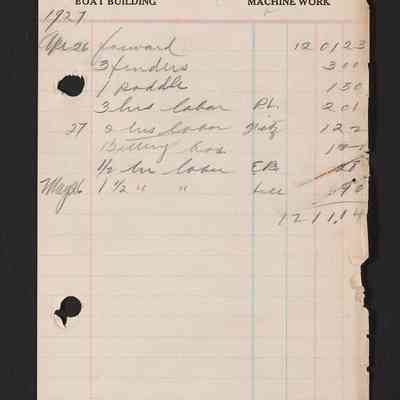 BOAT BUILDING MACHINE WORK
1927
Apr 26 forward 120123
3 fenders 300
1 paddle 150
3 hrs labor P.L. 201
27 2 hrs labor 122
Battery box
1/2 hr labor EB
May 26 1 1/2 " " Lee 90
1211.14